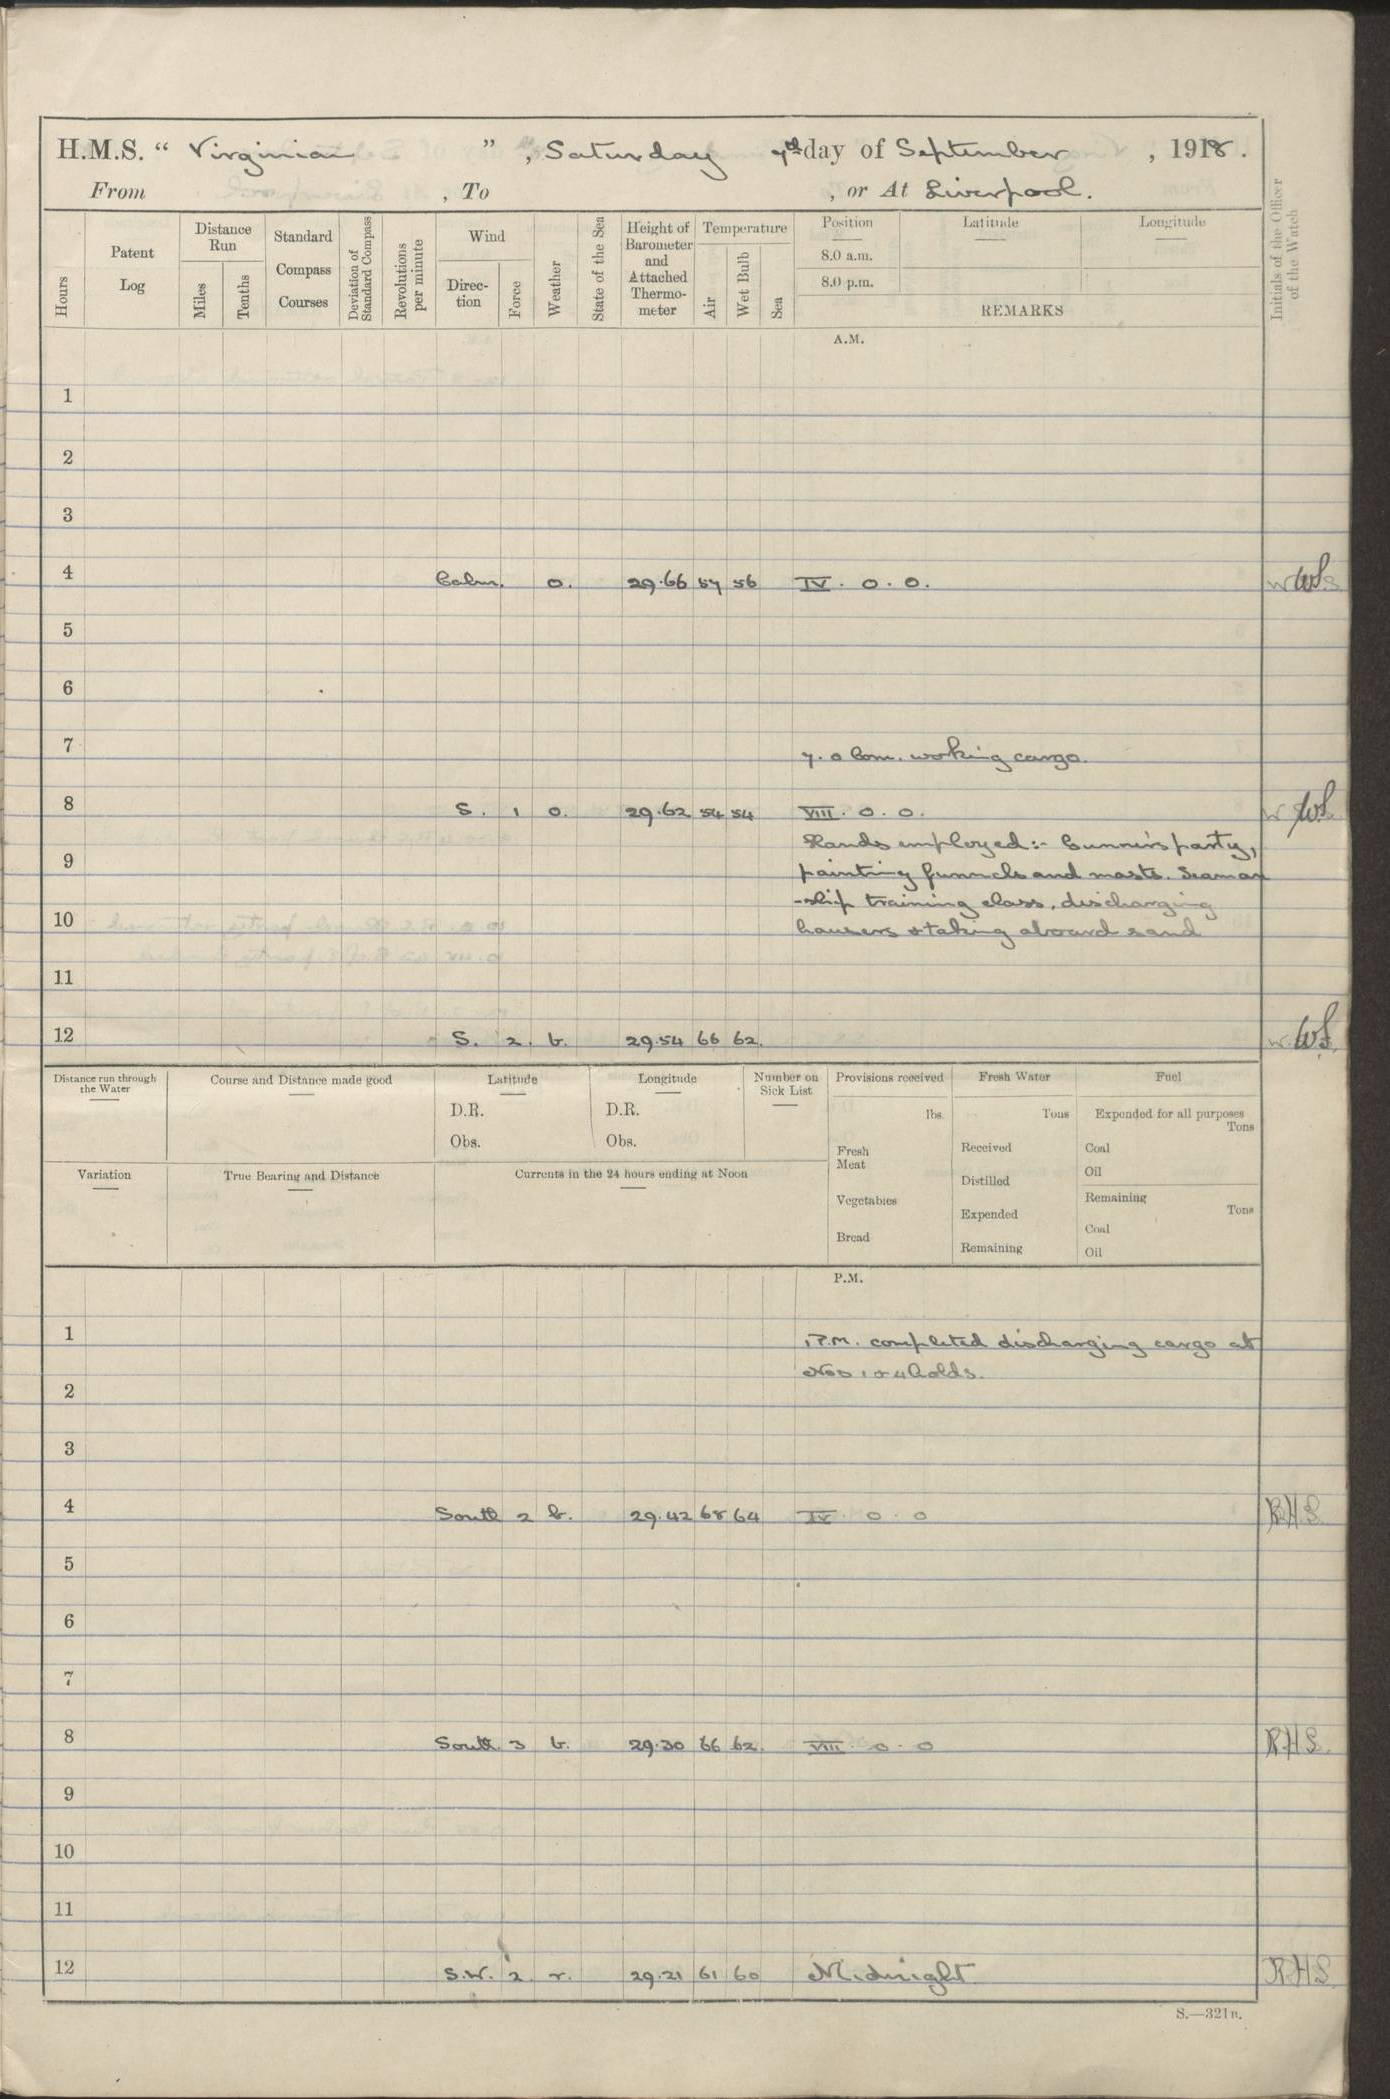 H.M.S. " Virginian ", Saturday 7th day of September, 1918.
From , To , or At Liverpool.
Hours Patent Log Distance Run Miles Tenths Standard Compass Courses Deviation of Standard Compass Revolutions per minute Wind Direction Force Weather State of the Sea Height of Barometer and Attached Thermometer Temperature Air Wet Bulb Sea Position 8.0 a.m. 8.0 p.m. Latitude Longitude REMARKS Initials of the Officer of the Watch
A.M.
1
2
3
4 Calm. o. 29.66 57 56 IV. 0. 0. WS
5
6
7 7.0 Com. working cargo.
8 S. 1 o. 29.62 54 54 VIII. 0. 0. WS
Hands employed:- Gunner's party,
9 painting funnels and masts. Seaman
-ship training class, discharging
10 hausers & taking aboard sand
11
12 S. 2. b. 29.54 66 62. WS
Distance run through the Water Course and Distance made good Latitude Longitude Number on Sick List Provisions received Fresh Water Fuel
D.R. D.R. lbs. Tons Expended for all purposes Tons
Obs. Obs. Fresh Meat Received Coal
Oil
Variation True Bearing and Distance Currents in the 24 hours ending at Noon Distilled
Vegetables Remaining Tons
Expended Coal
Bread Remaining Oil
P.M.
1 1 P.M. completed discharging cargo at
Nos 1 & 4 holds.
2
3
4 South 2 b. 29.42 68 64 IV. 0. 0 R.H.S.
5
6
7
8 South 3 b. 29.30 66 62. VIII. 0. 0 R.H.S.
9
10
11
12 S.W. 2 r. 29.21 61 60 Midnight R.H.S.
S.—321B.